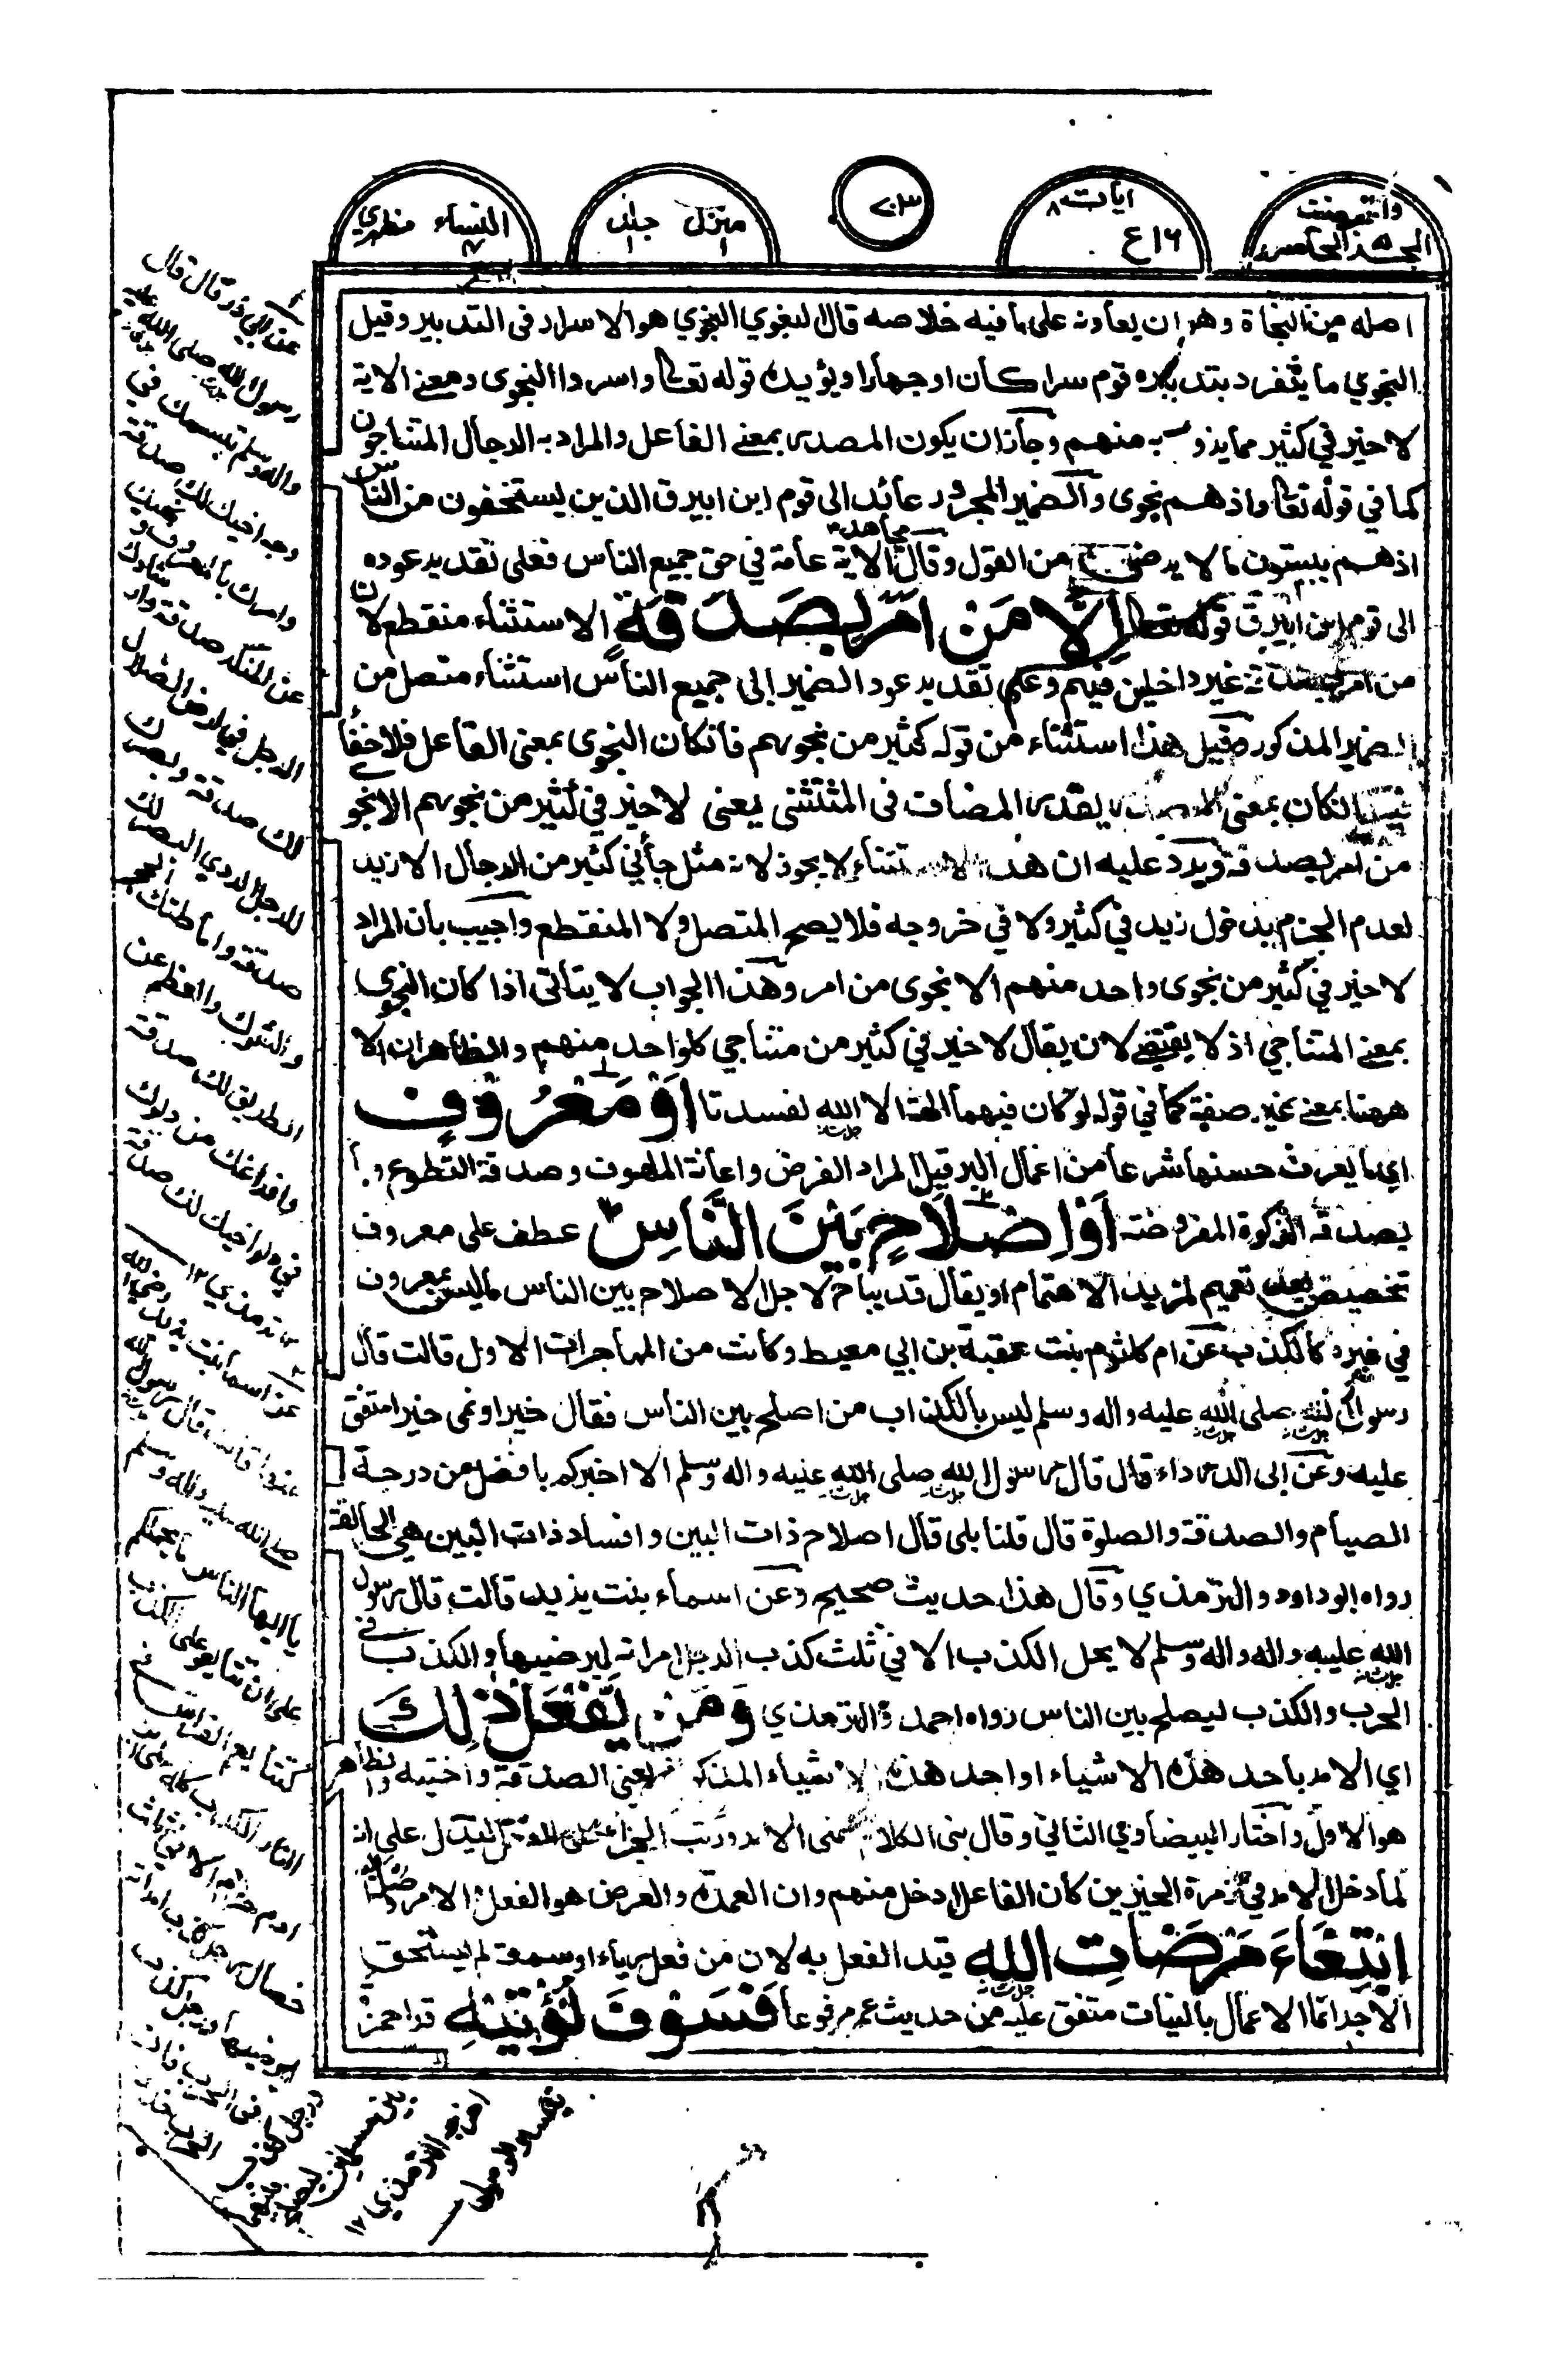 والمحصنت
الجزء الخامس
ايات ٨
١٦ع
٧٠٣
منزل ١ جلد ١
النساء مظهري
اصله من النجاة وهو ان يعاونه على ما فيه خلاصه قال البغوي النجوي هو الاسرار فى التدبير وقيل
النجوي ما يتفرد بتدبيره قوم سرا كان او جهارا ويؤيده قوله تعالى واسروا النجوى ومعنے الاية
لا خير في كثير مما يذو به منهم وجاز ان يكون المصدر بمعنے الفاعل والمراد به الرجال المتناجون
كما في قوله تعالى واذ هم نجوى والضمير المجرور عائد الى قوم ابن ابيرق الذين يستخفون من الناس
اذ هم يبيتون ما لا يرضى من القول وقال مجاهد الاية عامة في حق جميع الناس فعلى تقدير عوده
الى قوم ابن ابيرق قوله تعالى اِلَّا مَن اَمَرَ بِصَدَقَةٍ الاستثناء منقطع لان
من امر بصدقة غير داخلين فيهم وعلى تقدير عود الضمير إلى جميع الناس استثناء متصل من
الضمير المذكور وقيل هذا استثناء من قوله كثير من نجوىهم فانكان النجوى بمعنى الفاعل فلا خفأ
فيه وانكان بمعنى المصدر يقدر المضاف فى المثتثنى يعنى لا خير في كثير من نجوىهم الا نجوى
من امر بصدقة ويرد عليه ان هذا الاستثناء لا يجوز لانه مثل جأني كثير من الرجال الا زيد
لعدم الجزم بدخول زيد في كثير ولا في خروجه فلا يصح المتصل ولا المنقطع واجيب بان المراد
لا خير في كثير من نجوى واحد منهم الا نجوى من امر وهذا الجواب لا يتأتى اذا كان النجوى
بمعنے المتناجي اذ لا يقتضے لان يقال لا خير في كثير من متناجي كلواحد منهم والظاهر ان الا
ههنا بمعنے غير صفة كما في قوله لو كان فيهما الهة الا الله لفسدتا اَوْ مَعْرُوْفٍ
اي ما يعرف حسنها شرعا من اعمال البر قيل المراد الفرض واعانة الملهوف وصدقة التطوع و
بصدقة الزكوة المفروضة اَوْ اِصْلَاحٍ بَيْنَ النَّاسِ ط عطف على معروف
تخصيص بعد تعميم لمزيد الاهتمام او يقال قد يباح لاجل الاصلاح بين الناس ما ليس بمعروف
في غيره كالكذب عن ام كلثوم بنت عقبة بن ابي معيط وكانت من المهاجرات الاول قالت قال
رسول الله صلى الله عليه واله وسلم ليس بالكذاب من اصلح بين الناس فقال خيرا او نمى خيرا متفق
عليه وعن ابى الدرداء قال قال رسول الله صلى الله عليه واله وسلم الا اخبركم بافضل من درجة
الصيام والصدقة والصلوة قال قلنا بلى قال اصلاح ذات البين وافساد ذات البين هي الحالقة
رواه ابو داود والترمذي وقال هذا حديث صحيح وعن اسماء بنت يزيد قالت قال رسول
الله عليه واله واله وسلم لا يحل الكذب الا في ثلث كذب الرجل امراته ليرضيها والكذب في
الحرب والكذب ليصلح بين الناس رواه احمد والترمذي وَمَنْ يَّفْعَلْ ذٰلِكَ
اي الامر باحد هذه الاشياء او احد هذه الاشياء المذكورة يعنى الصدقة واختيه والظاهر
هو الاول واختار البيضاوي الثاني وقال بنى الكلام على الامر ورتب الجزاء على الفعل ليدل على انه
لما دخل الامر في زمرة الخيرين كان الفاعل ادخل منهم وان العمدة والغرض هو الفعل والامر وصلة
ابْتِغَاءَ مَرْضَاتِ اللهِ قيد الفعل به لان من فعل رياء او سمعة لم يستحق
الاجر انما الاعمال بالنيات متفق عليه من حديث عمر مرفوعا فَسَوْفَ نُؤْتِيْهِ قرا حمزة
عن ابي ذر قال قال
رسول الله صلى الله عليه
واله وسلم تبسمك في
وجه اخيك لك صدقة
وامرك بالمعروف ونهيك
عن المنكر صدقة وارشادك
الرجل في ارض الضلال
لك صدقة وبصرك
للرجل الردي البصر لك
صدقة واماطتك الحجر
والشوك والعظم عن
الطريق لك صدقة
وافراغك من دلوك
في دلو اخيك لك صدقة
ترمذي ١٢
عن اسماء بنت يزيد رضي الله
صلى الله عليه واله وسلم
يا ايها الناس ما يحملكم
على ان تتايعوا على الكذب
كتتايع الفراش في
النار الكذب كله على ابن
ادم حرام الا في ثلث
خصال رجل كذب امراته
ليرضيها ورجل كذب
في الحرب فان
الحرب خدعة
ورجل كذب
بين مسلمين ليصلح
اخرجه الترمذي ١٢